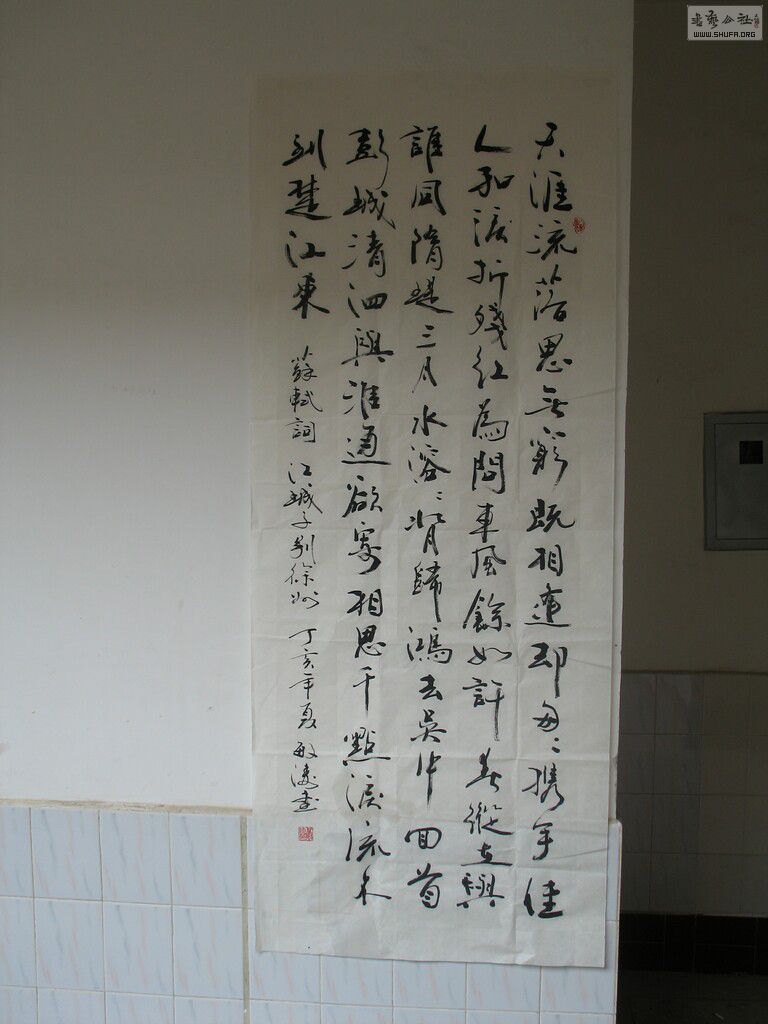 天涯流落思無窮既相逢却匆〻携手佳
人和淚折殘紅為問東風餘幾許春縱在與
誰同隋堤三月水溶〻背歸鴻去吳中回首
彭城清泗與淮通欲寄相思千點淚流不
到楚江東 蘇軾詞 江城子别徐州 丁亥年夏 敏書
書藝公社
WWW.SHUFA.ORG